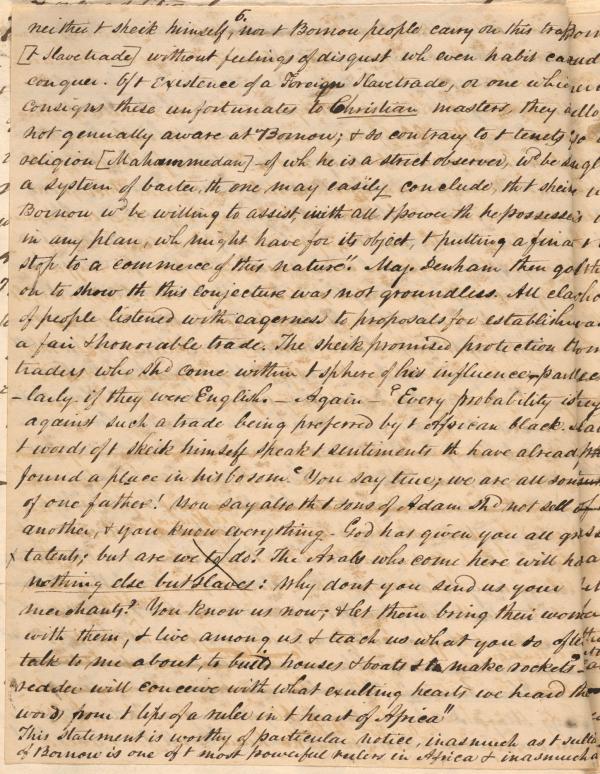 6.
neither t sheik himself, nor t Bornou people carry on this traf
[t Slave trade] without feelings of disgust wh even habit can
conquer. Of t Existence of a Foreign Slavetrade, or one which
consigns these unfortunates to Christian masters, they a
not generally aware at Bornou; & so contrary to t tenets
religion [Mahammedan] of wh he is a strict observer, wd be su
a system of barter, th one may easily conclude, tht sheik
Bornou wd be willing to assist, with all t power th he possesse
in any plan, wh might have for its object, t putting a final
stop to a commerce of this nature". Maj. Denham then go
on to show th this conjecture was not groundless. All cla
of people listened with eagerness to proposals for establish
a fair & honorable trade. The sheik promised protection to
traders who shd come within t sphere of his influence, partic
-larly if they were English. — Again — "Every probability is
against such a trade being preferred by t African black.
t words of t sheik himself speak t sentiments th have alread
found a place in his bosom. "You say true; we are all sons
of one father! You say also tht sons of Adam shd not sell
another, & you know everything - God has given you all
talents; but are we to do? The Arabs who come here will h
nothing else but slaves: Why dont you send us your
merchants? You know us now; & let them bring their wom
with them, & live among us & teach us what you so ofte
talk to me about, to build houses & boats & to make rockets"
redder will conceive with what exulting hearts we heard the
words from t lips of a ruler in t heart of Africa"
This statement is worthy of particular notice, inasmuch as t
of Bornou is one of t most powerful rulers in Africa & inasmuch a